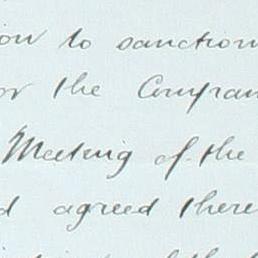 to sanction
the Compan
Meeting of the
d agreed there